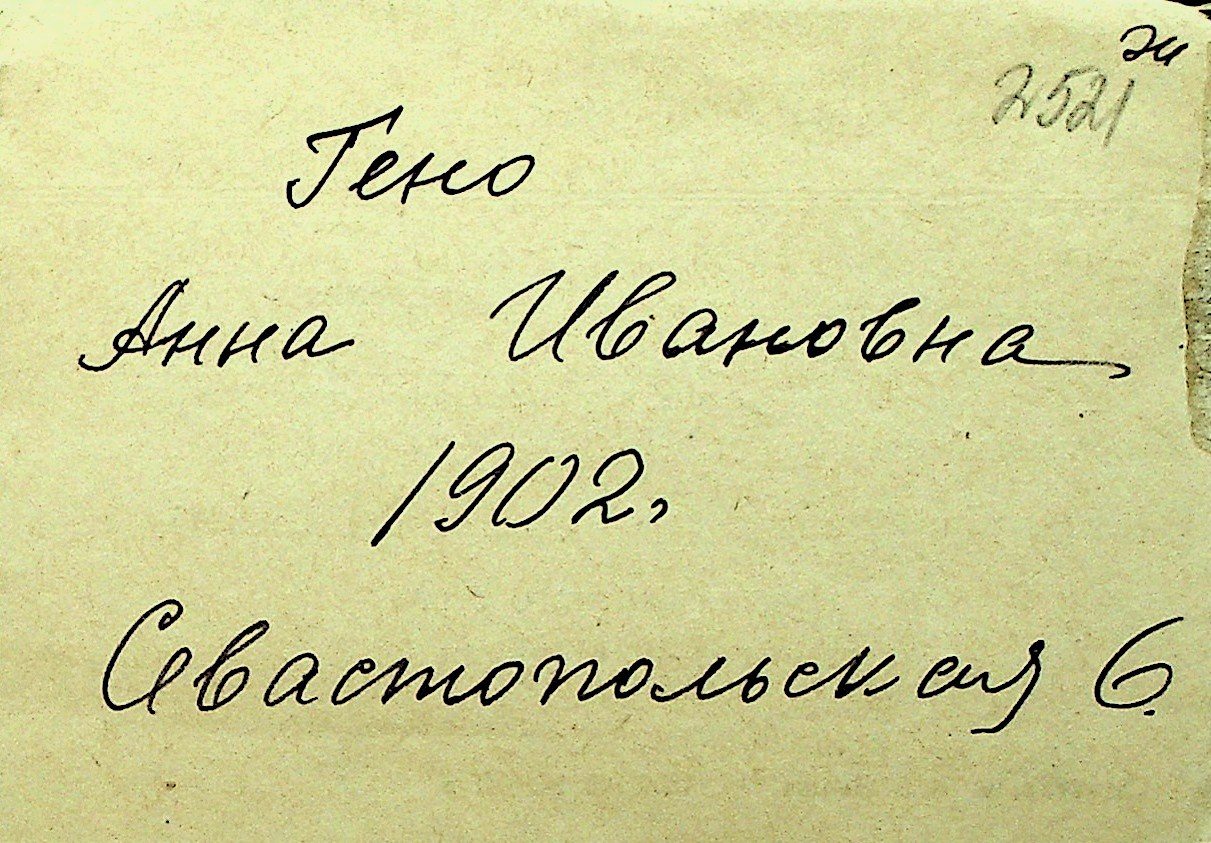 ж
2521
Гено
Анна Ивановна
1902г
Севастопольская 6.